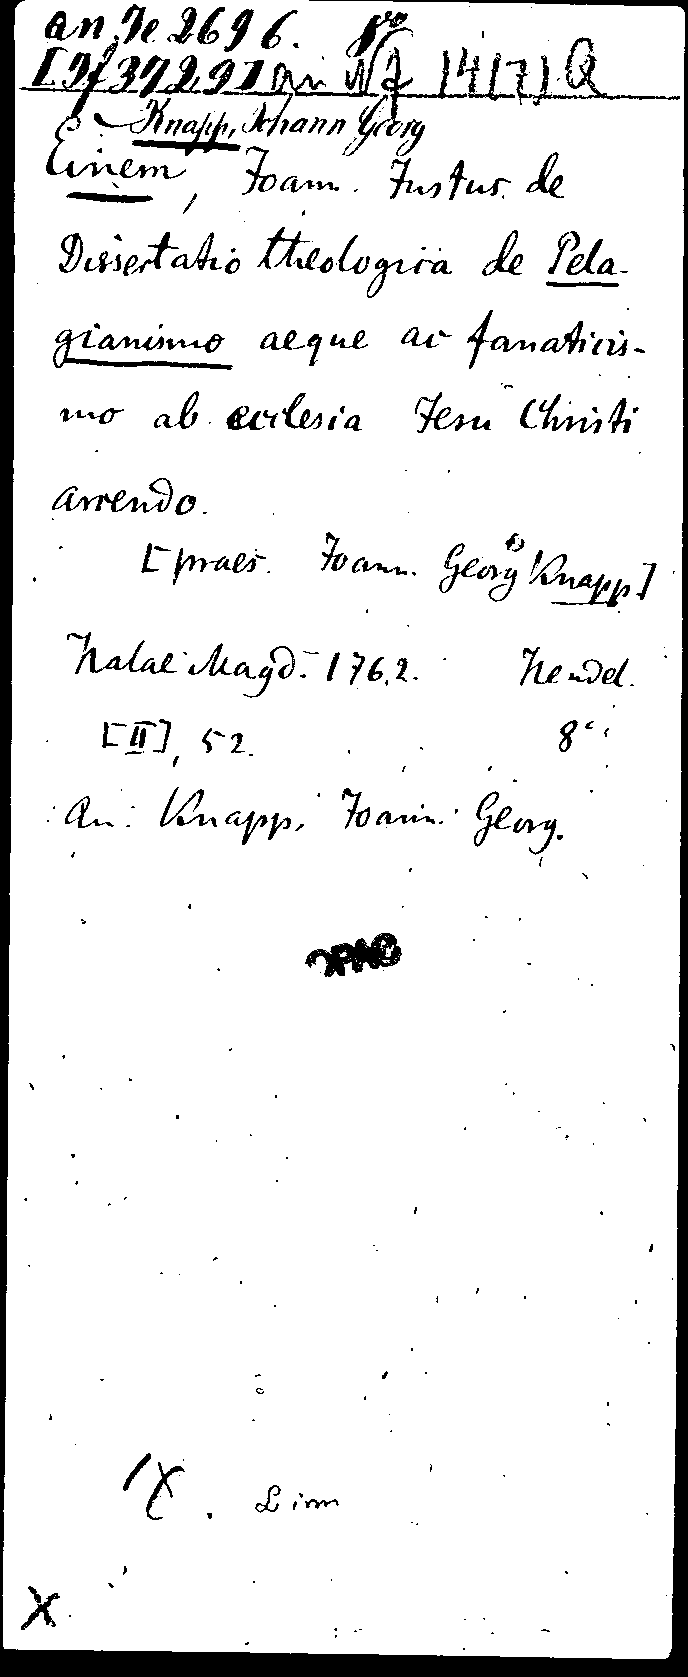 an Je 2696. 8vo
[Jf 37291 an Nf 14(7) Q
E Knapp, Johann Georg
Einem, Joann. Justus de
Dissertatio theologica de Pela-
gianismo aeque ac fanaticis-
mo ab ecclesia Jesu Christi
arcendo.
[praes. Joann. Georg Knapp]
Halae Magd. 1762. Hendel.
[II], 52. 8°
An: Knapp, Joann. Georg.
OPAC
X